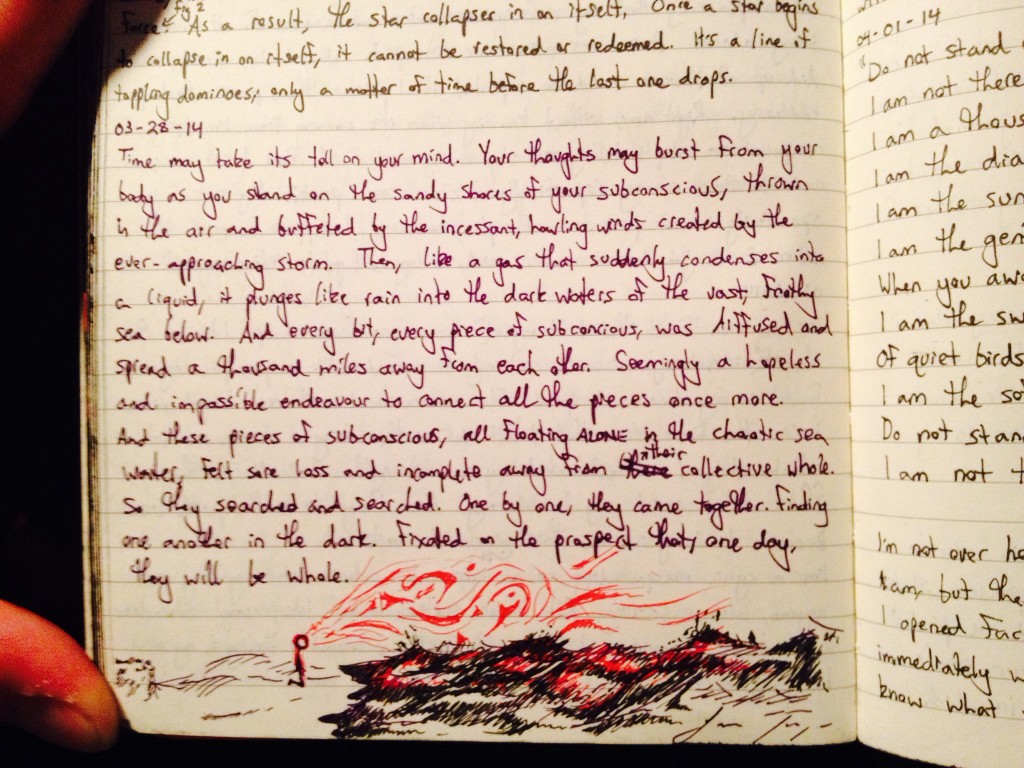 fig 2
force. As a result, the star collapses in on itself. Once a star begins
to collapse in on itself, it cannot be restored or redeemed. It's a line of
toppling dominoes; only a matter of time before the last one drops.
03-28-14
Time may take its toll on your mind. Your thoughts may burst from your
body as you stand on the sandy shores of your subconscious, thrown
in the air and buffeted by the incessant, howling winds created by the
ever-approaching storm. Then, like a gas that suddenly condenses into
a liquid, it plunges like rain into the dark waters of the vast, frothy
sea below. And every bit, every piece of subconcious, was diffused and
spread a thousand miles away from each other. Seemingly a hopeless
and impossible endeavour to connect all the pieces once more.
And these pieces of subconscious, all floating ALONE in the chaotic sea
water, felt sore loss and incomplete away from their collective whole.
So they searched and searched. One by one, they came together. Finding
one another in the dark. Fixated on the prospect that, one day,
they will be whole.
04-01-14
"Do not stand
I am not there
I am a thous
I am the dia
I am the sun
I am the gen
When you awa
I am the sw
of quiet birds
I am the so
Do not stan
I am not t
I'm not over he
am, but the
I opened Fac
immediately w
know what